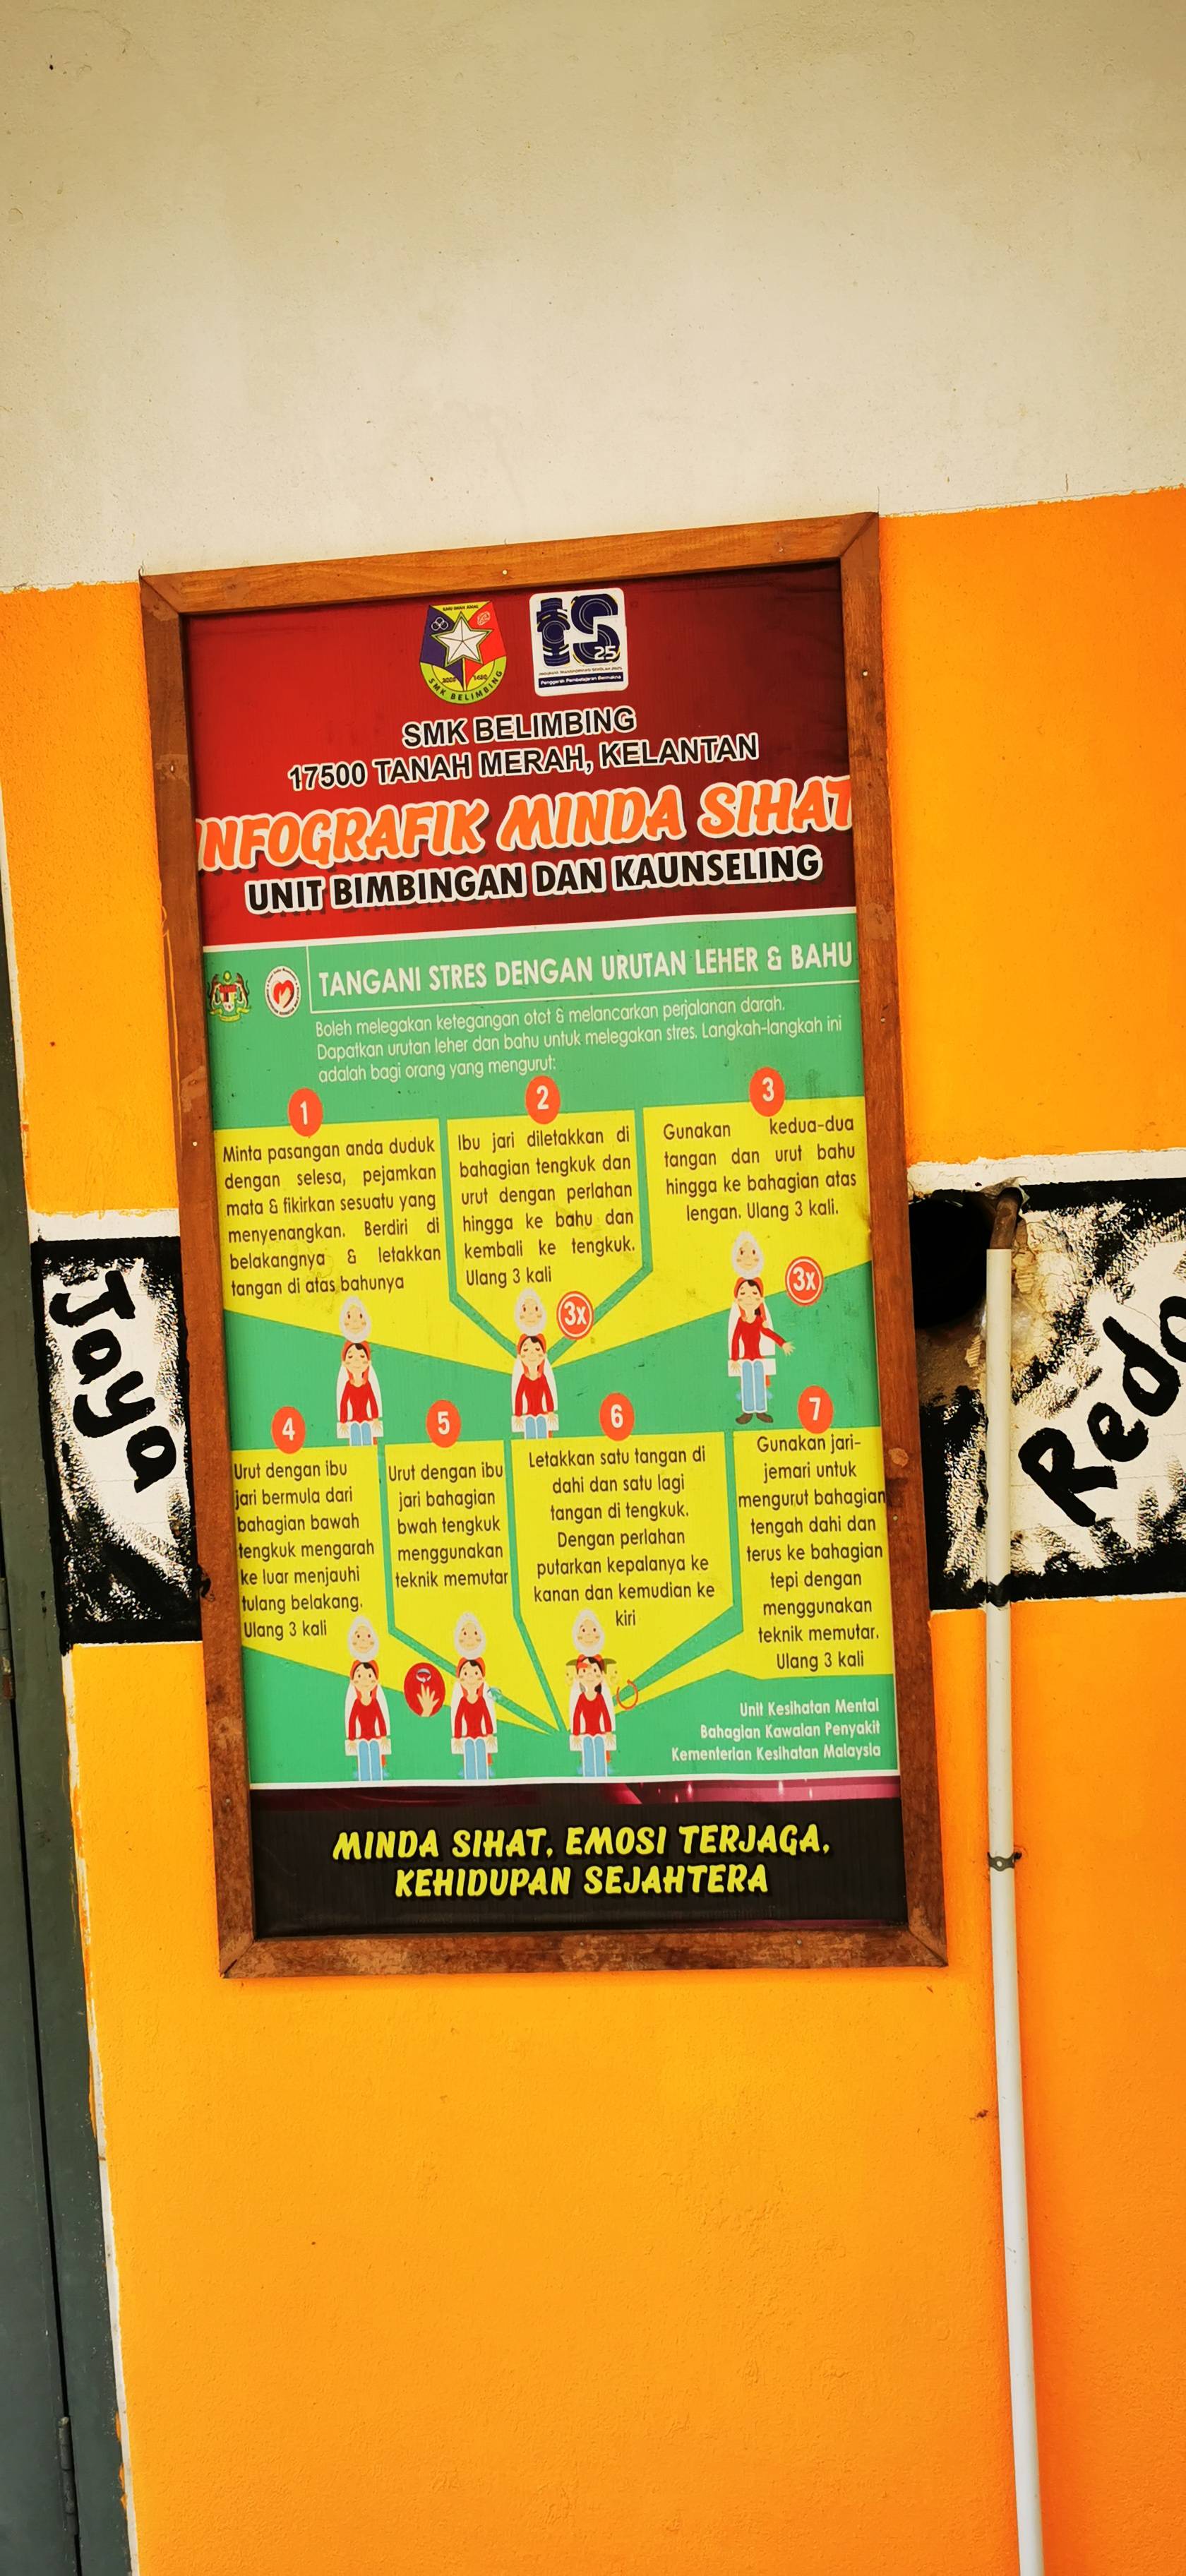 SMK BELIMBING
25
Penggerak Pembelajaran Bermakna
SMK BELIMBING
17500 TANAH MERAH, KELANTAN
INFOGRAFIK MINDA SIHAT
UNIT BIMBINGAN DAN KAUNSELING
TANGANI STRES DENGAN URUTAN LEHER & BAHU
Boleh melegakan ketegangan otot & melancarkan perjalanan darah.
Dapatkan urutan leher dan bahu untuk melegakan stres. Langkah-langkah ini
adalah bagi orang yang mengurut:
1
Minta pasangan anda duduk
dengan selesa, pejamkan
mata & fikirkan sesuatu yang
menyenangkan. Berdiri di
belakangnya & letakkan
tangan di atas bahunya
2
Ibu jari diletakkan di
bahagian tengkuk dan
urut dengan perlahan
hingga ke bahu dan
kembali ke tengkuk.
Ulang 3 kali
3x
3
Gunakan kedua-dua
tangan dan urut bahu
hingga ke bahagian atas
lengan. Ulang 3 kali.
3x
4
Urut dengan ibu
jari bermula dari
bahagian bawah
tengkuk mengarah
ke luar menjauhi
tulang belakang.
Ulang 3 kali
5
Urut dengan ibu
jari bahagian
bwah tengkuk
menggunakan
teknik memutar
6
Letakkan satu tangan di
dahi dan satu lagi
tangan di tengkuk.
Dengan perlahan
putarkan kepalanya ke
kanan dan kemudian ke
kiri
7
Gunakan jari-
jemari untuk
mengurut bahagian
tengah dahi dan
terus ke bahagian
tepi dengan
menggunakan
teknik memutar.
Ulang 3 kali
Unit Kesihatan Mental
Bahagian Kawalan Penyakit
Kementerian Kesihatan Malaysia
MINDA SIHAT, EMOSI TERJAGA,
KEHIDUPAN SEJAHTERA
Jaya